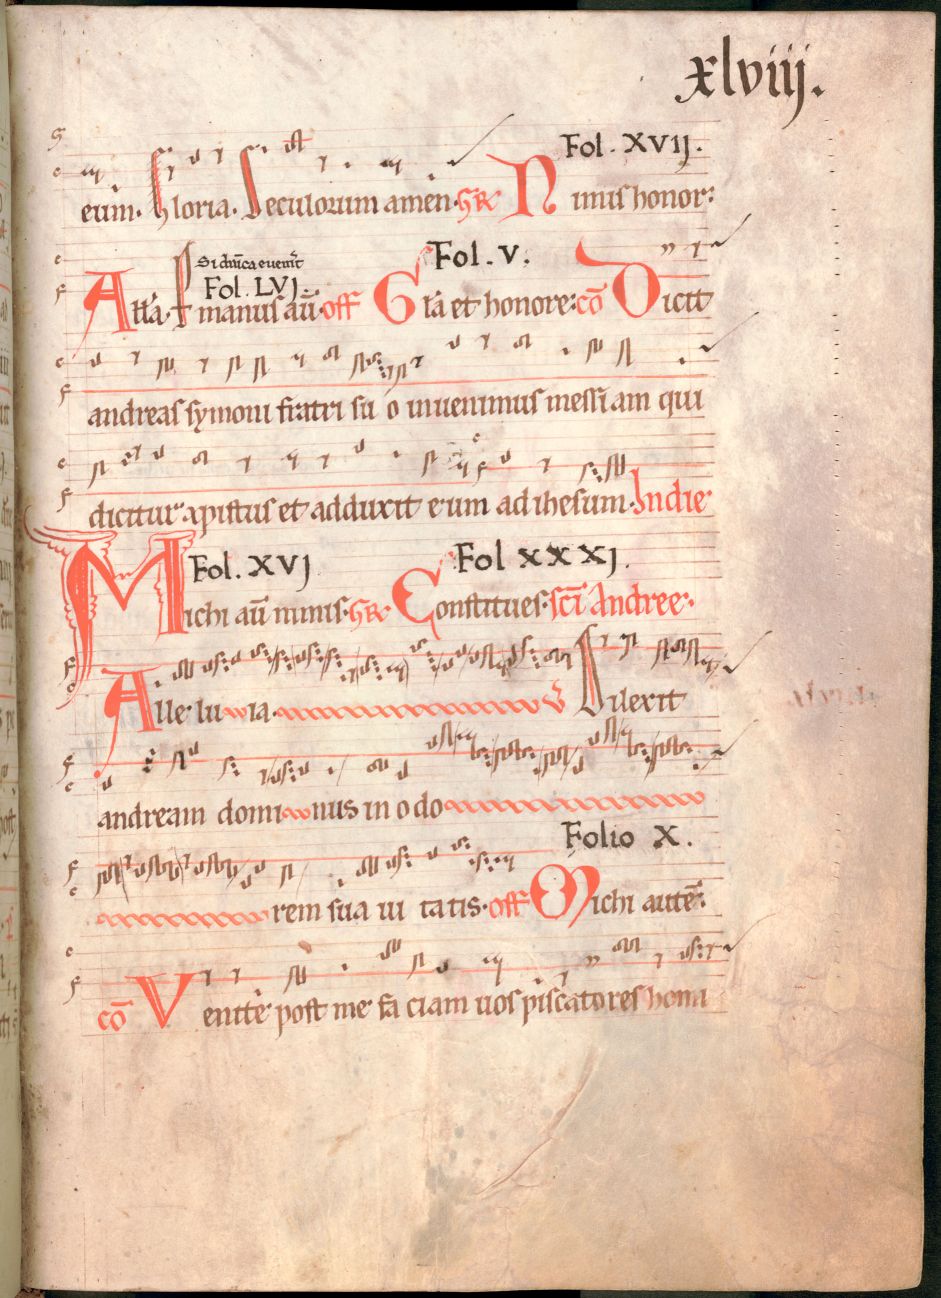 xlviij.
Fol. XVIJ.
eum. Gloria. Seculorum amen. GR Nimis honor:
Si dnica euenit
Fol. V.
Fol. LVJ.
Alla. P manus au. off Gla et honore: co Dicit
andreas symoni fratri su o inuenimus messi am qui
dicitur xpistus et adduxit eum ad ihesum. In die
Fol. XVJ
Fol XXXJ.
Michi au nimis. GR. Constitues. sci Andree.
Alle lu ia. Dilexit
andream domi nus in o do
Folio X.
rem sua ui tatis. off Michi aute.
co Venite post me fa ciam uos piscatores homi